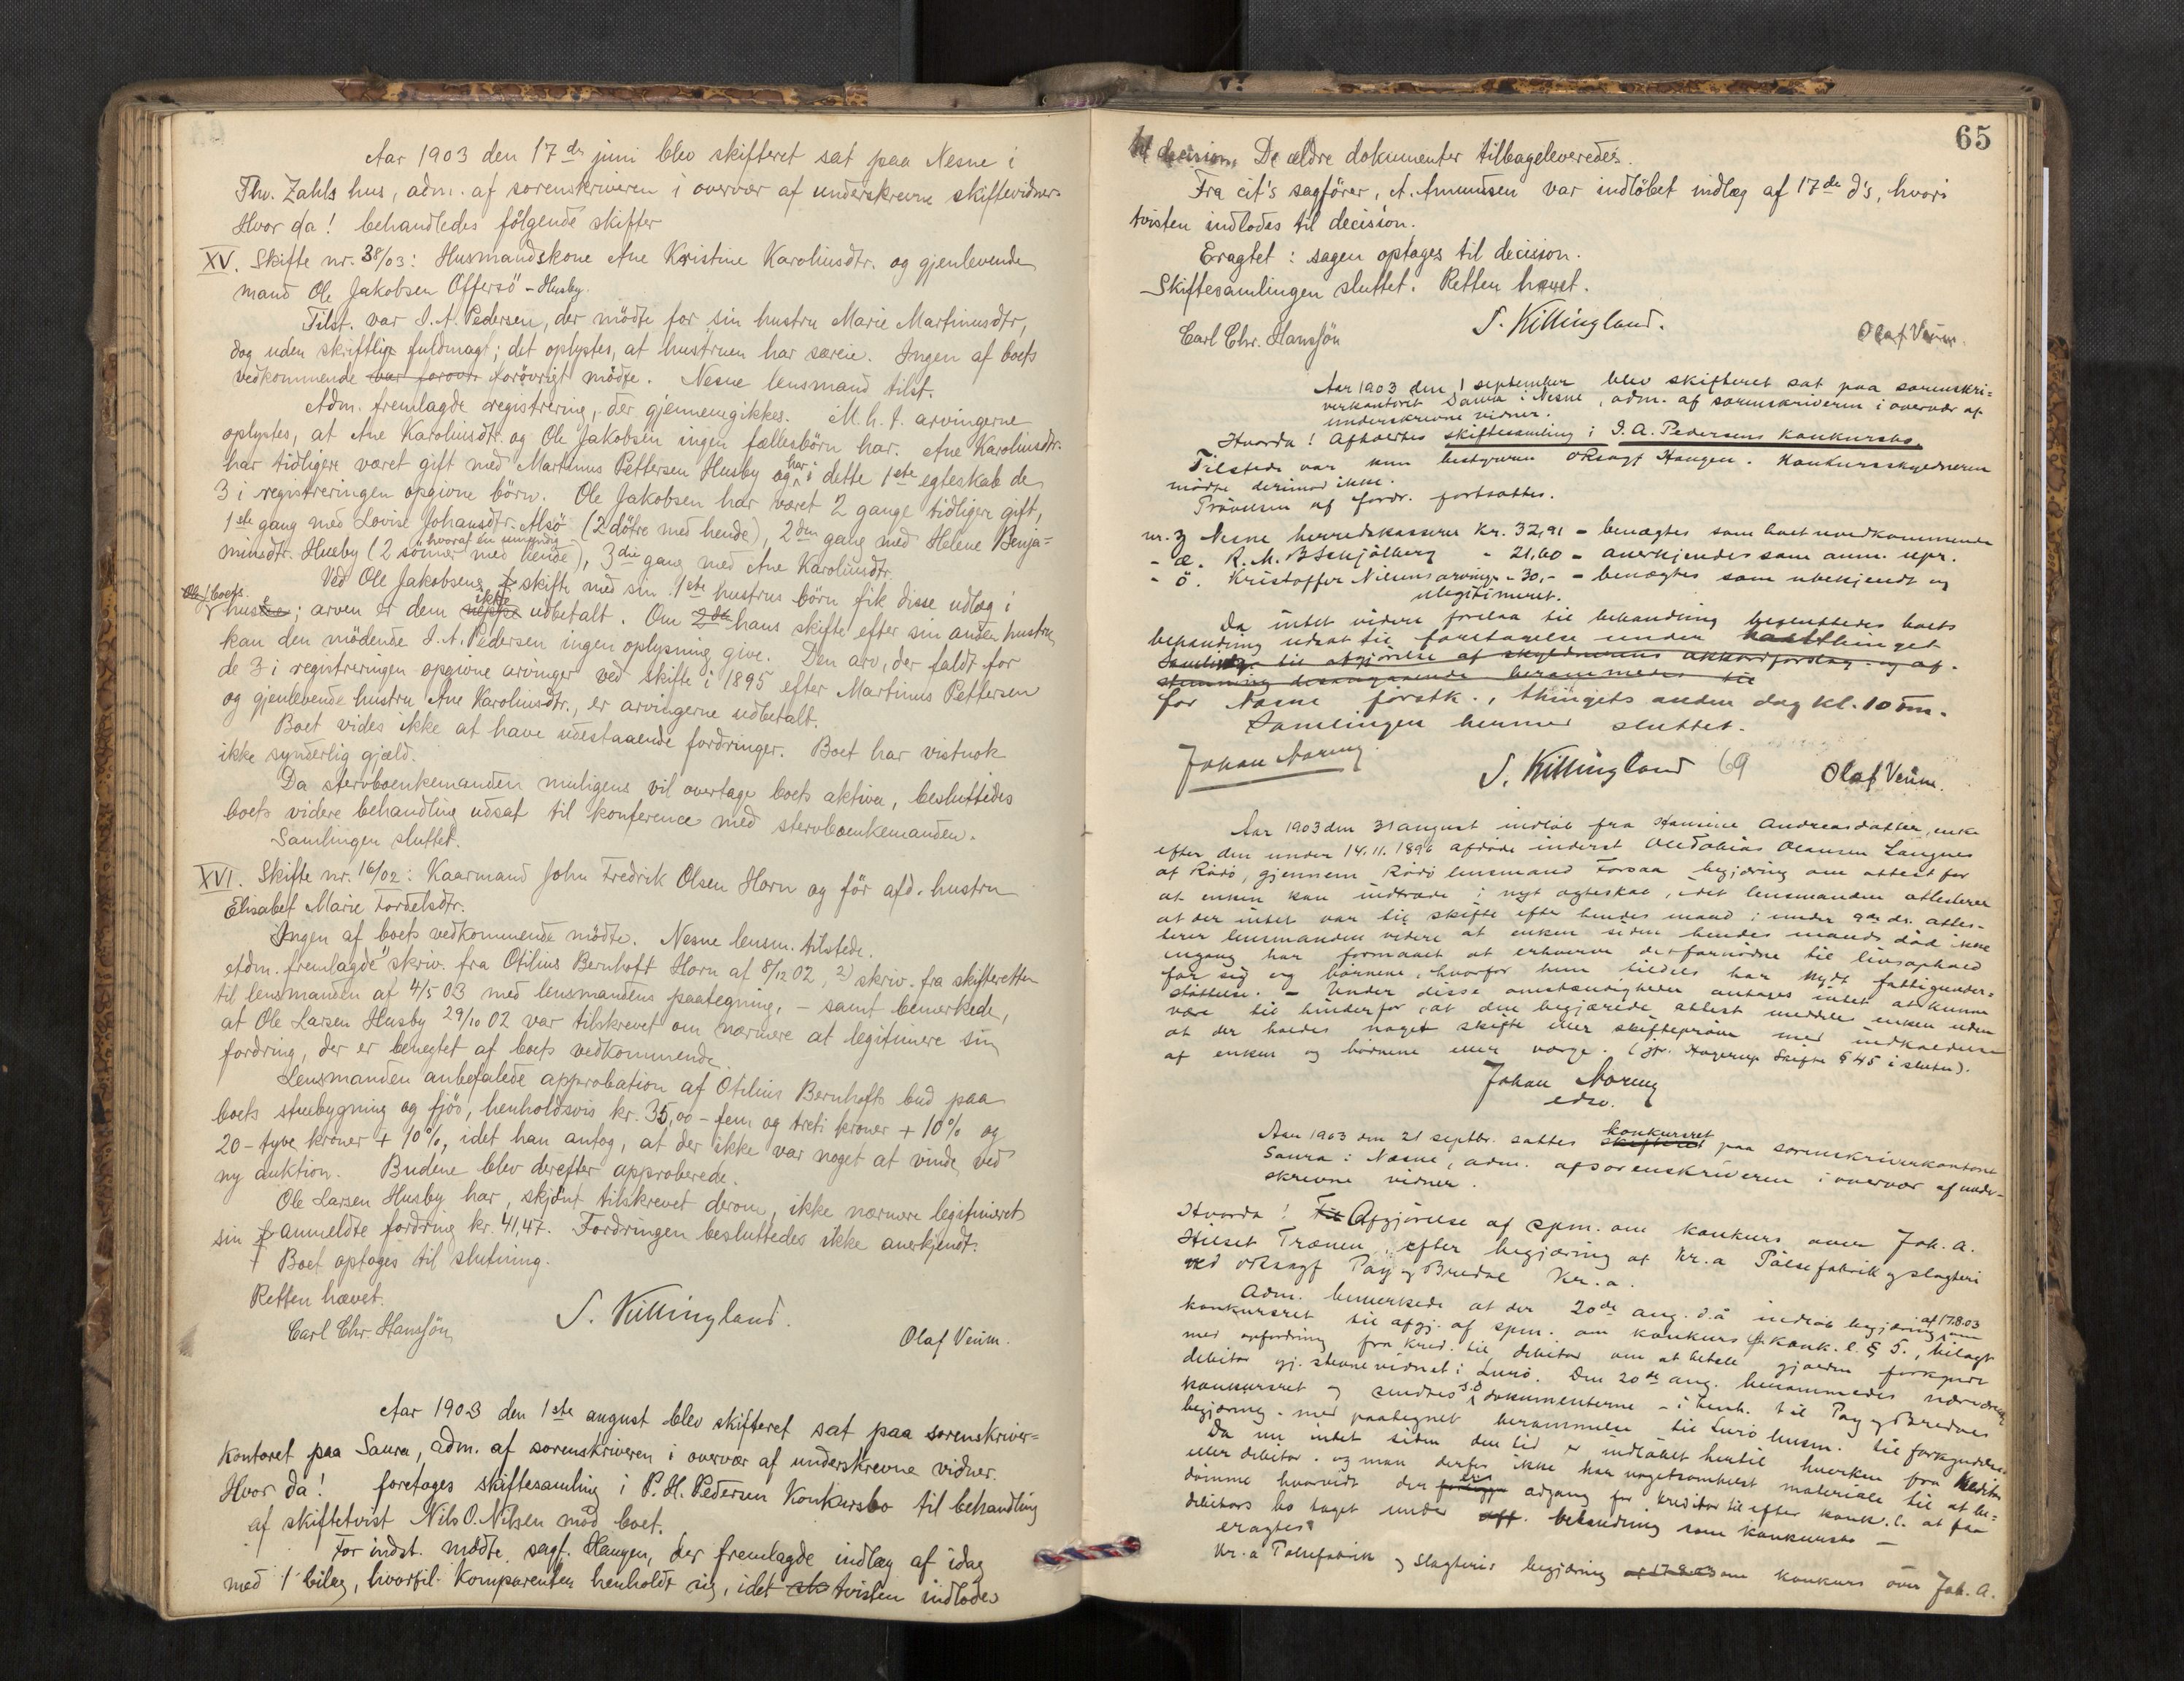 Aar 1903 den 17de juni blev skifteret sat paa Nesne i
Thv. Zahls hus, adm. af sorenskriveren i overvær af underskrevne skiftevidner.
Hvor da! behandledes følgende skifter
XV. Skifte nr. 38/03: Husmandskone Ane Kristine Karoliusdtr. og gjenlevende
mand Ole Jakobsen Offersö - Husby.
Tilst. var I. A. Pedersen, der mödte for sin hustru Marie Martinusdtr,
dog uden skriftlig fuldmagt; det oplystes, at hustruen har særeie. Ingen af boets
vedkommende var forøvr. forövrigt mödte. Nesne lensmand tilst.
Adm. fremlagde registrering, der gjennemgikkes. M. h. t. arvingerne
oplystes, at Ane Karoliusdtr. og Ole Jakobsen ingen fællesbörn har. Ane Karoliusdtr.
har tidligere været gift med Martinus Pettersen Husby og har i dette 1ste egteskab de
3 i registreringen opgivne börn. Ole Jakobsen har været 2 gange tidligere gift,
1ste gang med Lovise Johansdtr. Alsö (2 dötre med hende), 2den gang med Helene Benja=
minsdtr. Husby (2 sönner hvoraf en umyndig med hende), 3die gang med Ane Karoliusdtr.
Ved Ole Jakobsens skifte med sin 1ste hustrus börn fik disse udlæg i
boets huse; arven er dem ikke udbetalt. Om 2det hans skifte efter sin anden hustru
kan den mödende I. A. Pedersen ingen oplysning give. Den arv, der faldt for
de 3 i registreringen opgivne arvinger ved skifte i 1895 efter Martinus Pettersen
og gjenlevende hustru Ane Karoliusdtr., er arvingerne udbetalt.
Boet vides ikke at have udestaaende fordringer. Boet har vistnok
ikke synderlig gjæld.
Da stervboenkemanden muligens vil overtage boets aktiva, besluttedes
boets videre behandling udsat til konference med stervboenkemanden.
Samlingen sluttet.
XVI. Skifte nr. 16/02: Kaarmand John Fredrik Olsen Horn og för afd. hustru
Elisabet Marie Tordelsdtr.
Ingen af boets vedkommende mödte. Nesne lensm. tilstede.
Adm. fremlagde 1) skriv. fra Otilius Bernhoft Horn af 8/12 02, 2) skriv. fra skifteretten
til lensmanden af 4/5 03 med lensmandens paategning, - samt bemerkede,
at Ole Larsen Husby 29/10 02 var tilskrevet om nærmere at legitimere sin
fordring, der er benegtet af boets vedkommende.
Lensmanden anbefalede approbation af Otilius Bernhofts bud paa
boets stuebygning og fjös, henholdsvis kr. 35,00 - fem og treti kroner + 10% og
20 - tyve kroner + 10%, idet han antog, at der ikke var noget at vinde ved
ny auktion. Budene blev derefter approberede.
Ole Larsen Husby har, skjönt tilskrevet derom, ikke nærmere legitimeret
sin anmeldte fordring kr. 41,47. Fordringen besluttedes ikke anerkjendt.
Boet optages til slutning.
Retten hævet.
S. Killingland.
Carl Chr. Hansjön
Olaf Veum.
Aar 1903 den 1ste august blev skifteret sat paa sorenskriver=
kontoret paa Saura, adm. af sorenskriveren i overvær af underskrevne vidner.
Hvor da! foretages skiftesamling i P. H. Pedersen Konkursbo til behandling
af skiftetvist Nils O. Nilsen mod boet.
For indst. mödte sagf. Haugen, der fremlagde indlæg af idag
med 1 bilag, hvortil komparenten henholdt sig, idet tvisten indlodes
65
til decision. De ældre dokumenter tilbageleveredes.
Fra cit's sagförer, A. Amundsen var indlöbet indlæg af 17de d's, hvori
tvisten indlodes til decision.
Eragtet: sagen optages til decision.
Skiftesamlingen sluttet. Retten hævet.
S. Killingland.
Carl Chr. Hansjön
Olaf Veum.
Aar 1903 den 1 september blev skifteret sat paa sorenskri=
verkontoret Saura i Nesne, adm. af sorenskriveren i overvær af
underskrevne vidner.
Hvorda! Afholdtes skiftesamling i I. A. Pedersens konkursbo.
Tilstede var kun bestyreren oRsagf Haugen. Konkursskyldneren
mödte derimod ikke.
Prövelsen af fordr. fortsattes.
nr. z Nesne herredskasserer kr. 32,91 - benægtes som boet uvedkommende
- æ. R. M. B Schjölberg - 21.60 - anerkjendes som anm. upr.
- ö. Kristoffer Nilsens arvinger - 30,- - benægtes som ubekjendt og
ulegitimeret.
Da intet videre forelaa til behandling besluttedes boets
behandling udsat til foretagelse under høstthinget
Samling til afgjörelse af skyldnerens akkordforslag og af-
stemning desangaaende berammedes til
for Nesne förstk., thingets anden dag kl. 10 fm.
Samlingen hermed sluttet.
Johan Noreng
S. Killingland 69
Olaf Veum.
Aar 1903 den 31 august indlöb fra Hansine Andreasdatter, enke
efter den under 14.11.1896 afdöde inderst Ole Tobias Olausen Langnes
af Rödö, gjennem Rödö lensmand Forsaa begjæring om attest for
at enken kan indtræde i nyt ægteskab, idet lensmanden attesterer
at der intet var til skifte efter hendes mand; under 9de ds. attes-
terer lensmanden videre at enken siden hendes mands död ikke
engang har formaaet at erhverve det fornödne til livsophold
for sig og börnene, hvorfor hun tildels har nydt fattigunder=
støttelse. - Under disse omstændigheder antages intet at kunne
være til hinder for, at den begjærede attest meddeles enken uden
at der holdes noget skifte eller skifteprøve med indkaldelse
af enken og börnene eller værge. (jfr. Hagerup Skifte § 45 i slutn).
Johan Noreng
edsv.
Aar 1903 den 21 septbr. sattes skifteret konkursret paa sorenskriverkontoret
Saura i Nesne, adm. af sorenskriveren i overvær af under-
skrevne vidner.
Hvorda! Til Afgjörelse af spm. om konkurs over Joh. A.
Hilset Trænen, efter begjæring af Kr.a Pölsefabrik og slagteri
ved oRsagf Pay og Bredal Kr.a.
Adm. bemerkede at der 20de aug. d.å indlöb begjæring af 17.8.03 om
konkursret til afgj. af spm. om konkurs jfr konk. l. § 5., bilagt
med opfordring fra kred. til debitor om at betale gjælden forkyndt
debitor gj. stevnevidnet i Lurö. Den 20de aug. berammedes nærværende
konkursret og sendtes s.d dokumenterne - i henh. til Pay og Bredals
begjæring - med paategnet berammelse til Lurö lensm. til forkyndelse.
Da nu intet siden den tid er indlöbet hertil hverken fra kreditor
eller debitor og man derfor ikke har nogetsomhelst materiale til at be=
dömme hvorvidt der er adgang for kreditor til efter konk. l. at faa
debitors bo taget under aff. behandling som konkursbo -
eragtes
Kr.a Pölsefabrik og Slagteris begjæring af 17.8.03 om konkurs over Joh. A.